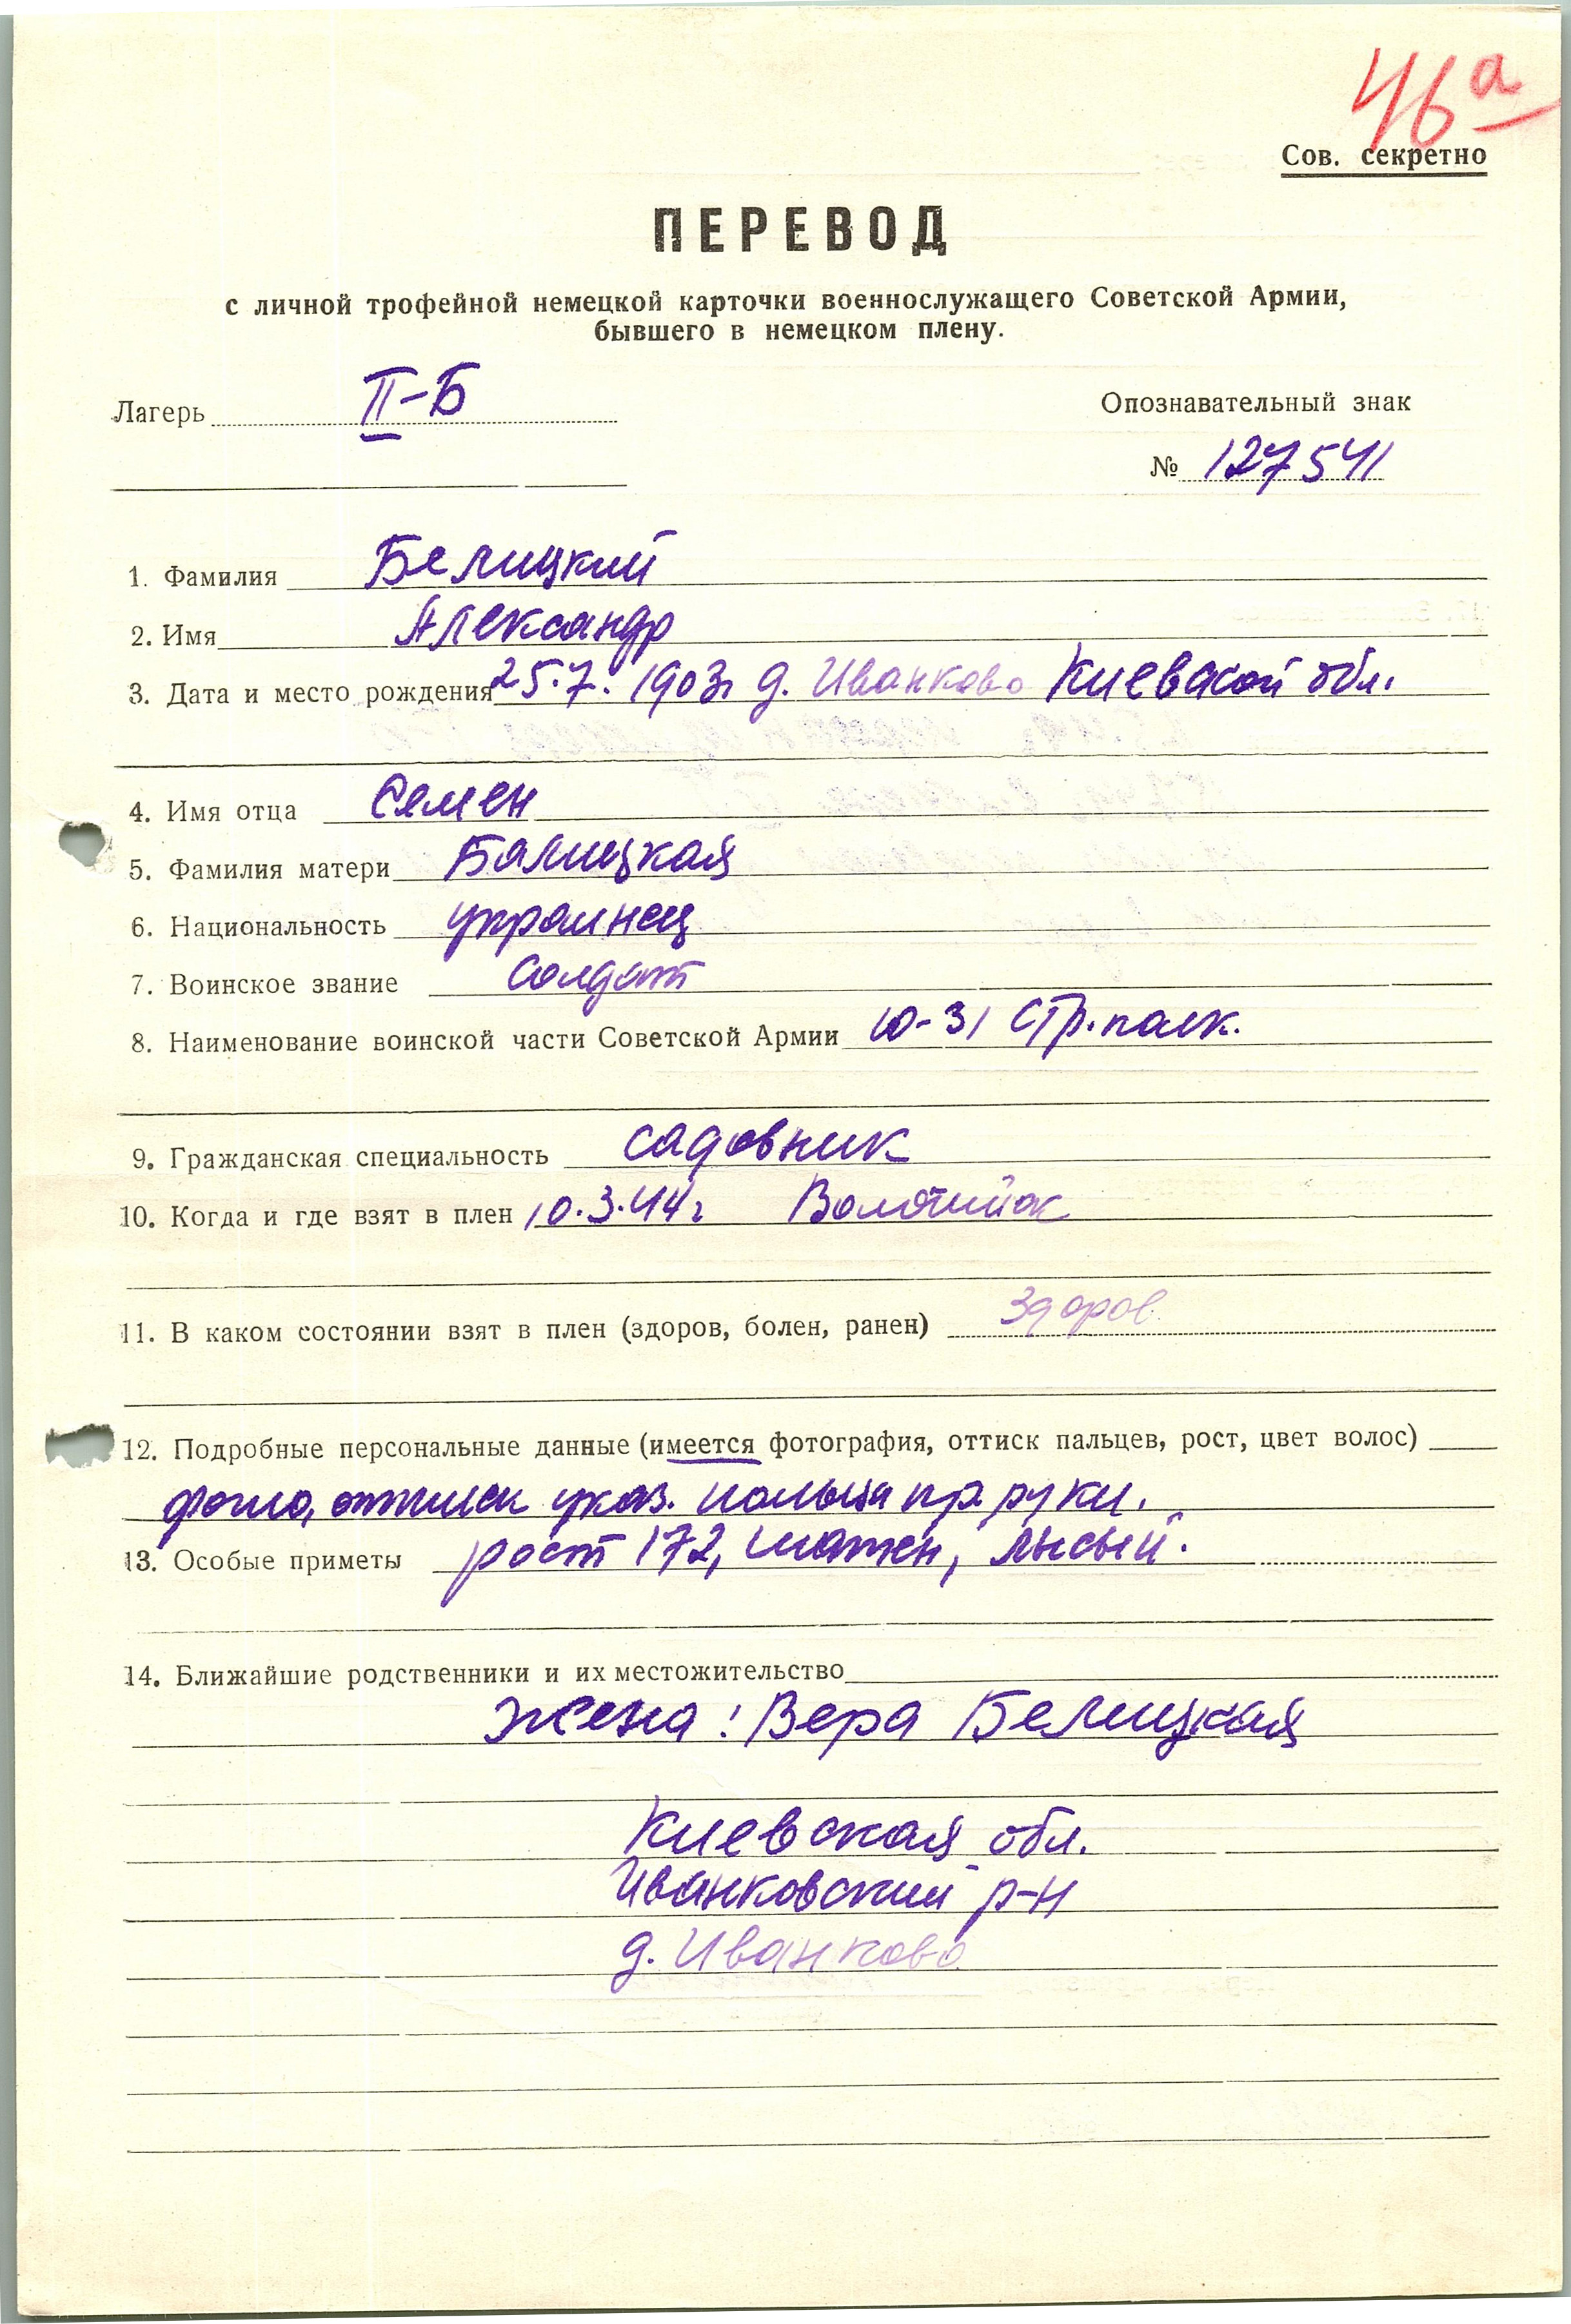 46а
Сов. секретно
ПЕРЕВОД
с личной трофейной немецкой карточки военнослужащего Советской Армии,
бывшего в немецком плену.
Лагерь II-Б
Опознавательный знак
№ 127541
1. Фамилия Белицкий
2. Имя Александр
3. Дата и место рождения 25.7.1903г д. Иванково Киевской обл.
4. Имя отца Семен
5. Фамилия матери Балицкая
6. Национальность украинец
7. Воинское звание солдат
8. Наименование воинской части Советской Армии 10-31 стр. полк.
9. Гражданская специальность садовник
10. Когда и где взят в плен 10.3.44г
11. В каком состоянии взят в плен (здоров, болен, ранен) здоров
12. Подробные персональные данные (имеется фотография, оттиск пальцев, рост, цвет волос)
фото, оттиск указ. пальца пр. руки.
13. Особые приметы рост 172, шатен, лысый.
14. Ближайшие родственники и их местожительство
жена: Вера Белицкая
Киевская обл.
Иванковский р-н
д. Иванково